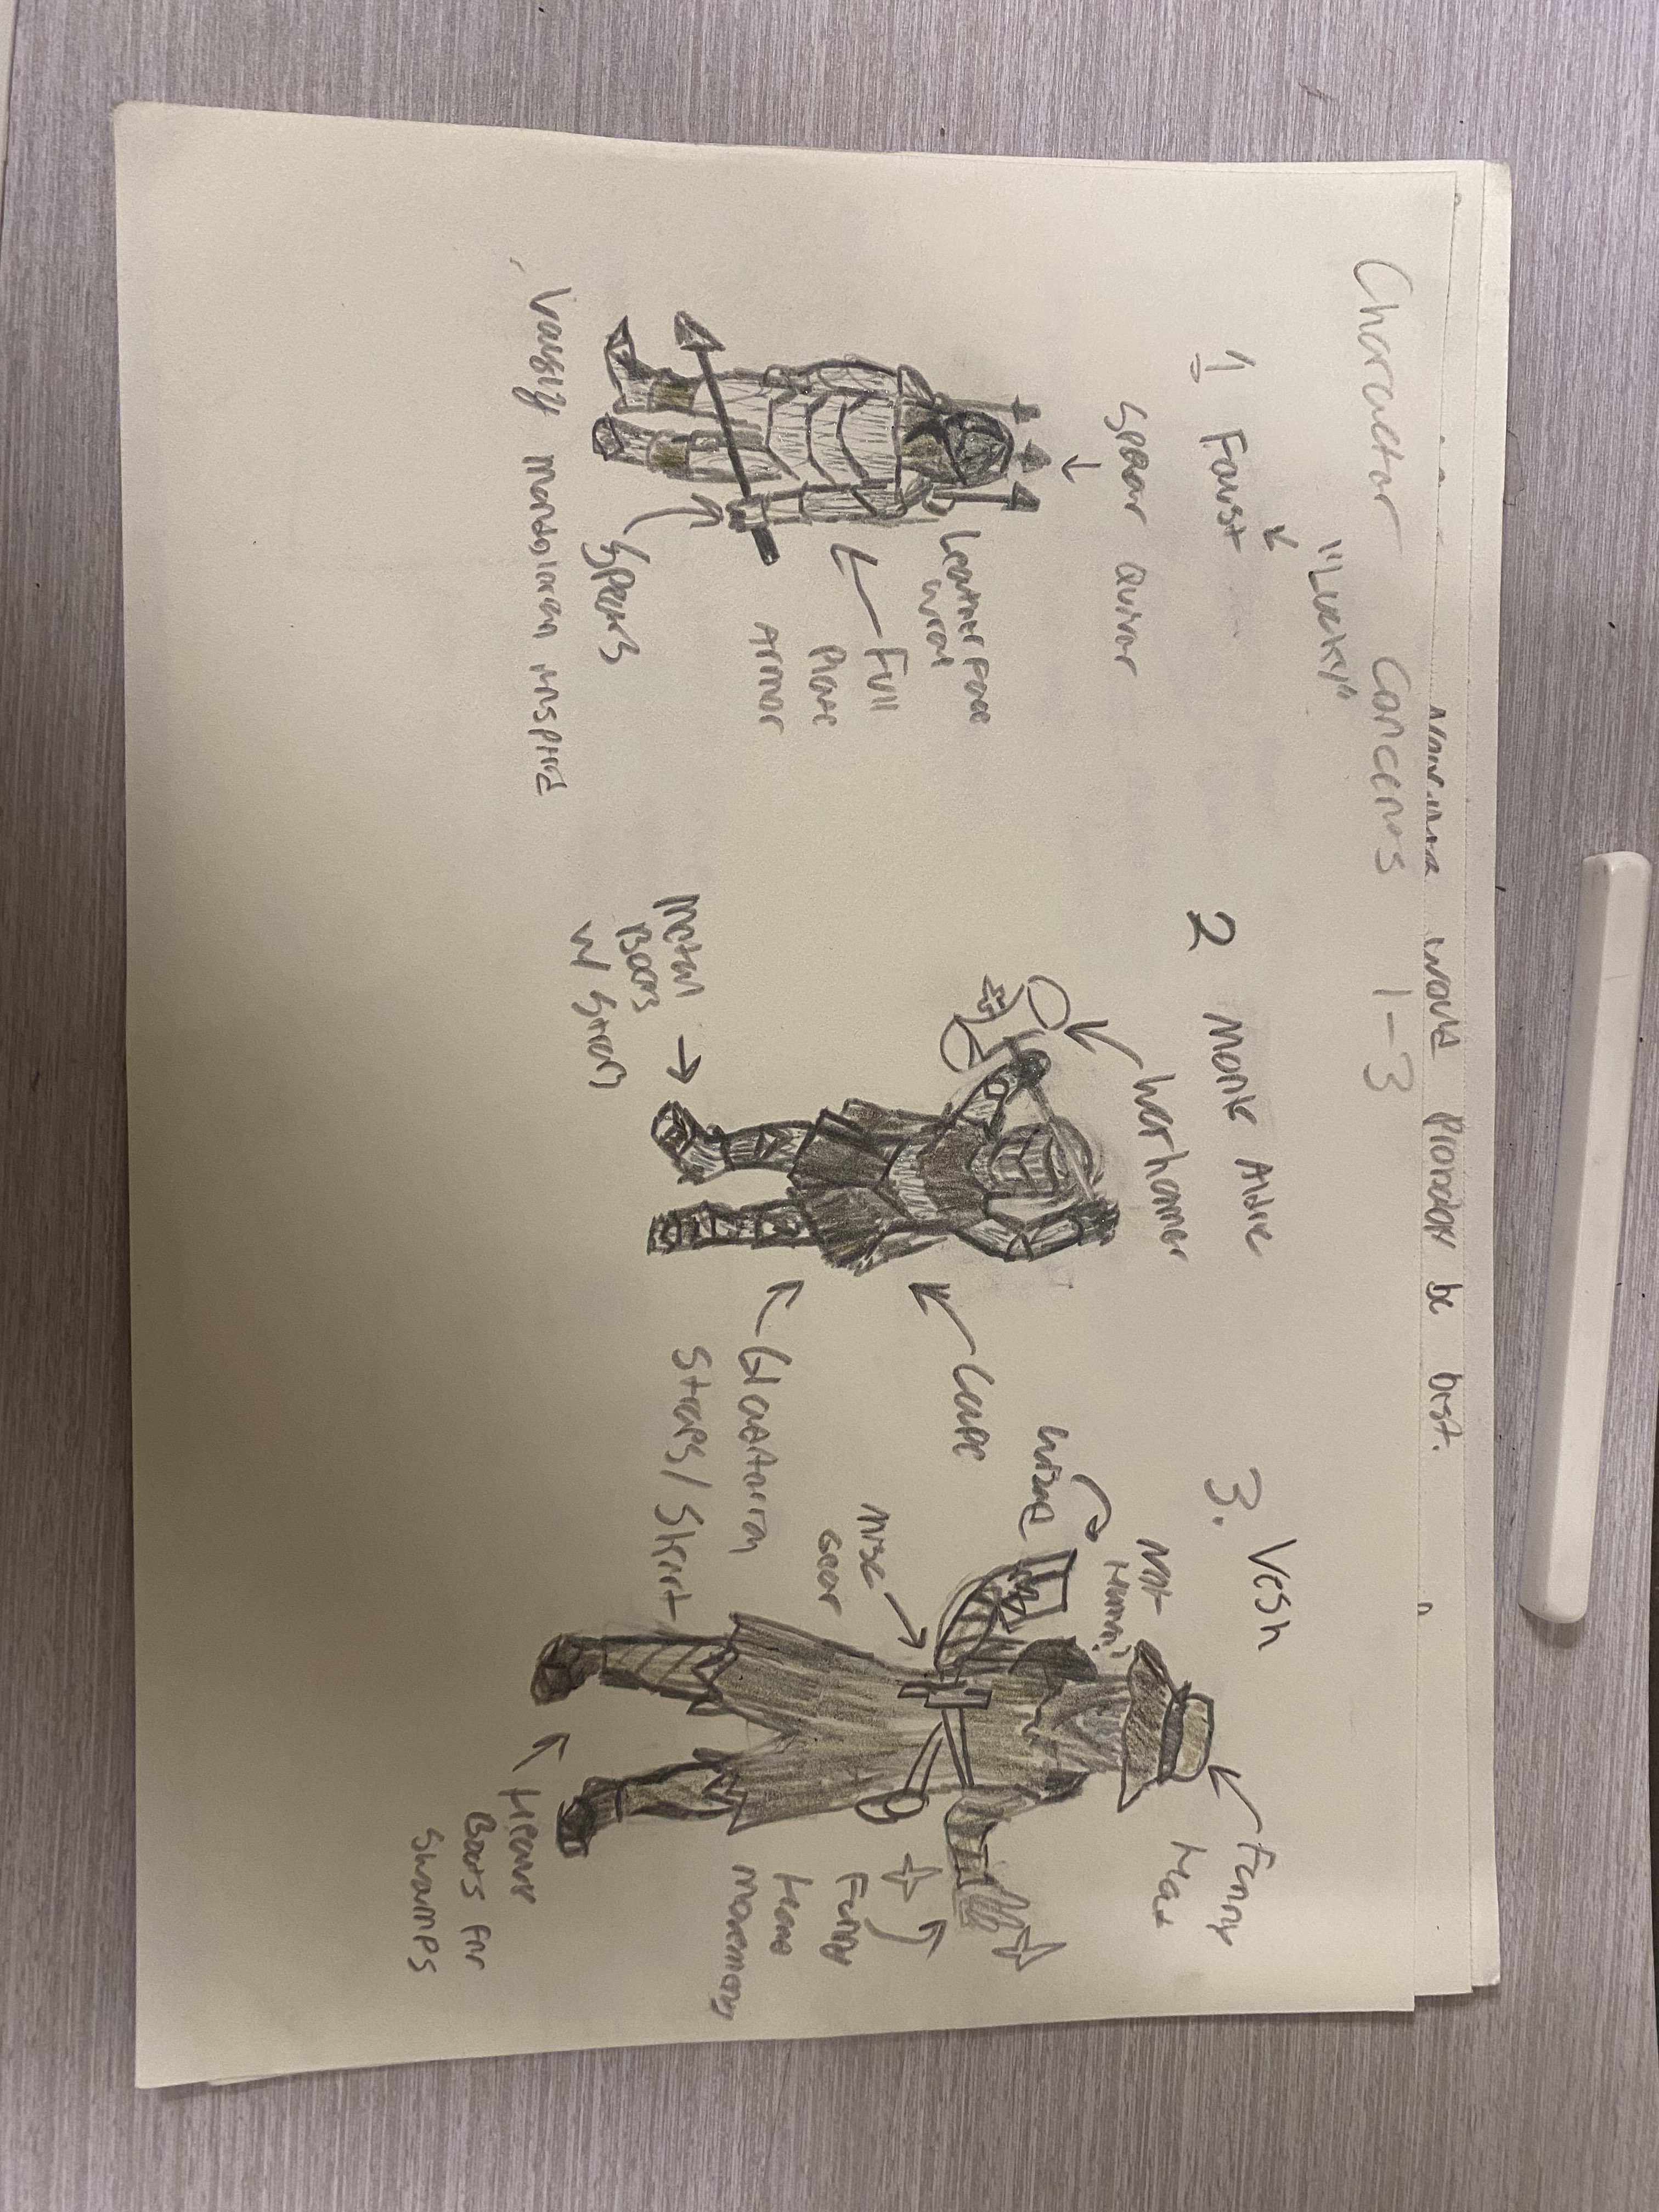 would probably be best.
Character Concepts 1-3
"Lucky"
1 Faust
Spear Quiver
Leather Face
wrap
Full
Plate
Armor
Spears
Vaugly Mongolian inspired
2 Monk
Warhammer
Cape
Gladiatorial
Straps/Skirt
Metal
Boots
w/ Straps
3. Vesh
Funny
Hat
Not
Human?
Misc
Gear
Funny
Hand
movements
Heavy
Boots for
Swamps